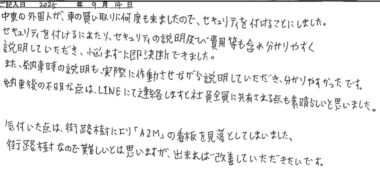 ご記入日 2025年 9月 14日
中東の外国人が、車の買い取りに何度も来ましたので、セキュリティを付けることにしました。
セキュリティを付けるにあたり、セキュリティの説明及び費用等も含め分かりやすく
説明していただき、悩まずに即決断できました。
また、納車時の説明も、実際に作動させながら説明していただき、分かりやすかったです。
納車後の不明な点は、LINEにて連絡しますと社員全員に共有される点も素晴らしいと思いました。
気付いた点は、街路樹により「A2M」の看板を見落としてしまいました、
街路樹なので難しいとは思いますが、出来れば改善していただきたいです。